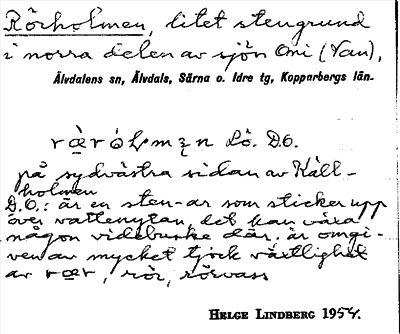 Rörholmen, litet stengrund
i norra delen av sjön Omi (Van),
Älvdalens sn, Älvdals, Särna o. Idre tg, Kopparbergs län.
Lö. D.O.
på sydvästra sidan av Käll-
holmen
D.O.: är en sten-ar som sticker upp
över vattenytan, det kan växa
någon videbuske där, är omgi-
ven av mycket tjock växtlighet
av rœr, rör, rörvass
HELGE LINDBERG 1954.